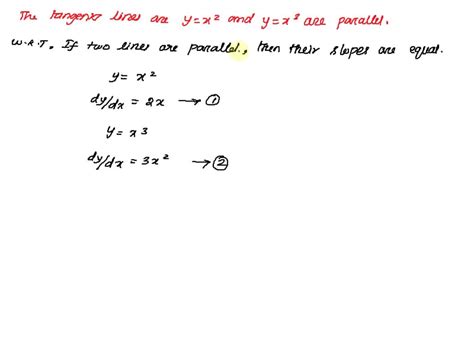 The tangent lines are y=x² and y=x³ are parallel.
W.K.T. If two lines are parallel, then their slopes are equal.
y= x²
dy/dx = 2x → ①
y= x³
dy/dx = 3x² → ②